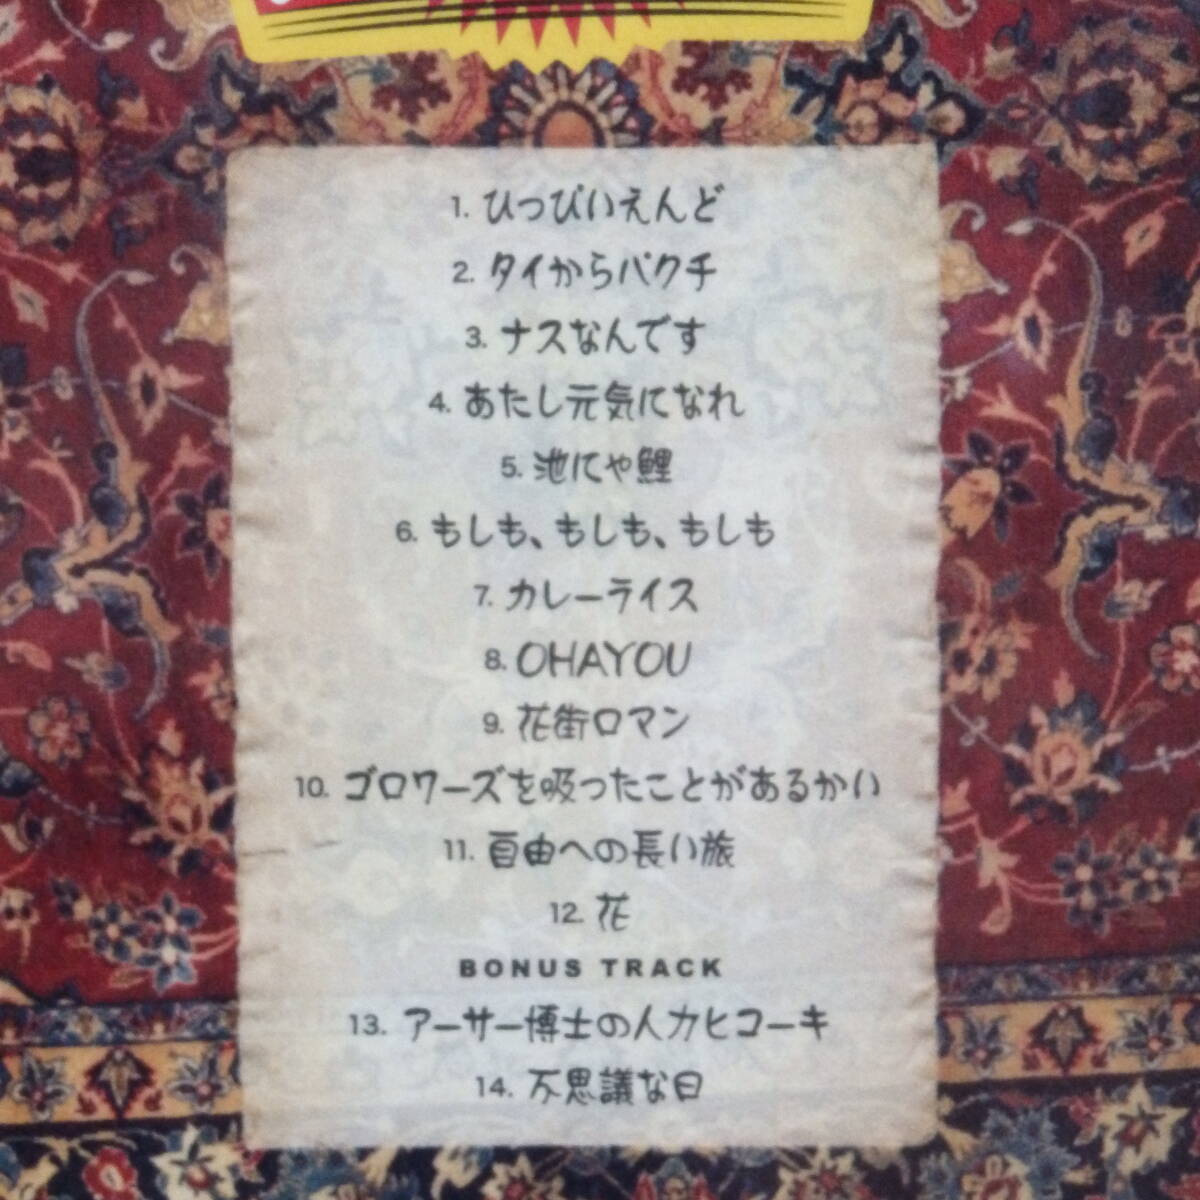 1. ひっぴいえんど
2. タイからパクチ
3. ナスなんです
4. あたし元気になれ
5. 池にゃ鯉
6. もしも、もしも、もしも
7. カレーライス
8. OHAYOU
9. 花街ロマン
10. ゴロワーズを吸ったことがあるかい
11. 自由への長い旅
12. 花
BONUS TRACK
13. アーサー博士の人力ヒコーキ
14. 不思議な日